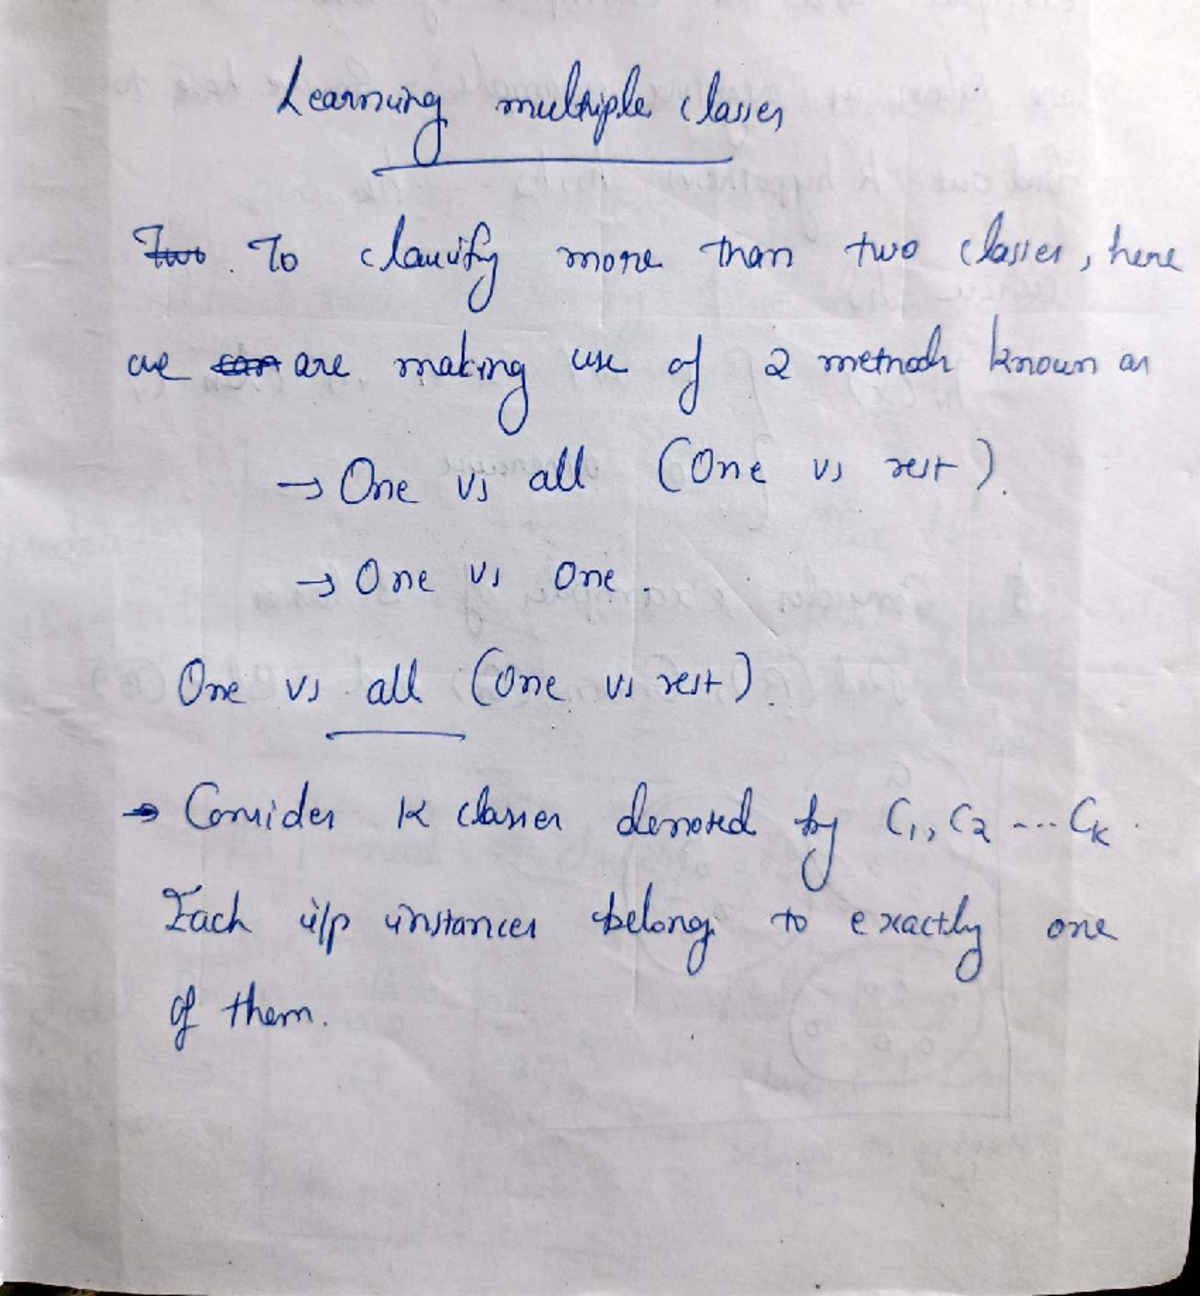 Learning multiple classes
Two. To classify more than two classes, here
we can are making use of 2 methods known as
→ One vs all (One vs rest).
→ One vs One.
One vs all (One vs rest)
→ Consider K classes denoted by C1, C2 ... CK.
Each i/p instances belong to exactly one
of them.